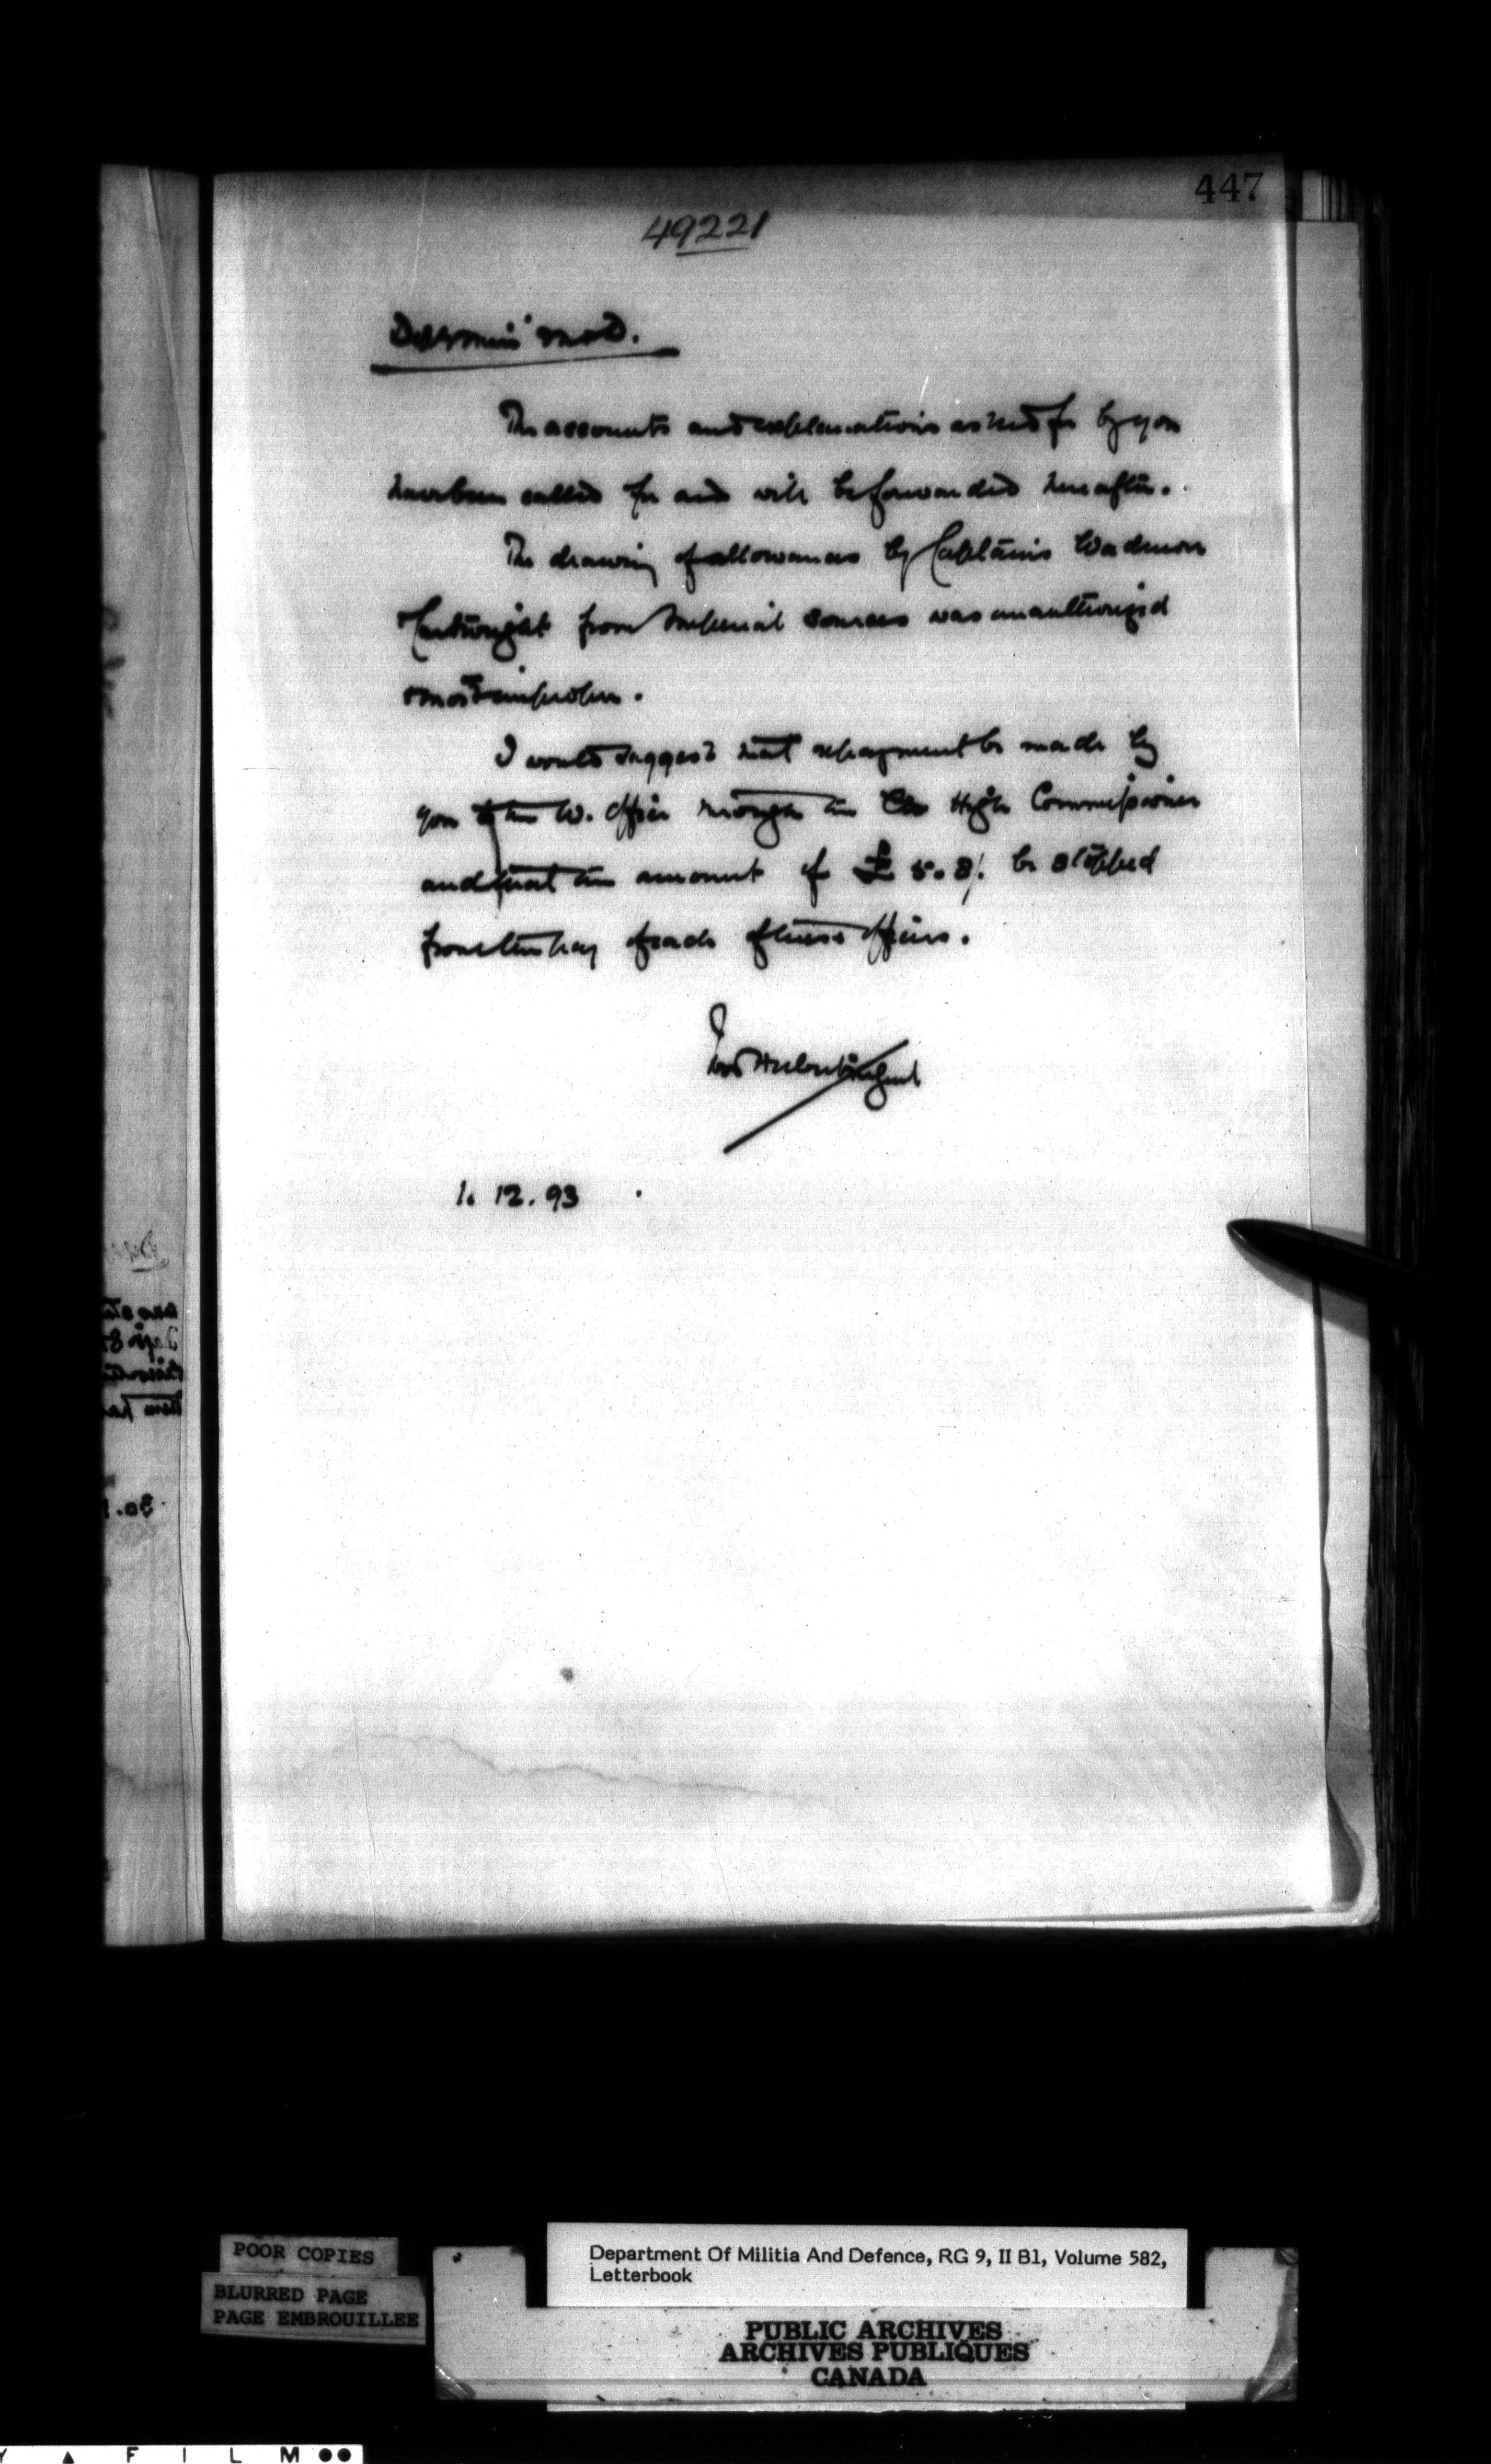 447
49221
Dep Minis' M & D.
The accounts and explanations asked for by you
have been called for and will be forwarded hereafter.
The drawing of allowances by Captains Wadmore
& Cartwright from Imperial sources was unauthorized
& most improper.
I would suggest that repayment be made by
you to the W. Office through the High Commissioner
and that the amount of £ 5.8/. be stopped
from the pay of each of these officers.
Ivor Herbert
1. 12. 93
30.
POOR COPIES
BLURRED PAGE
PAGE EMBROUILLEE
Department Of Militia And Defence, RG 9, II B1, Volume 582,
Letterbook
PUBLIC ARCHIVES
ARCHIVES PUBLIQUES
CANADA
F I L M